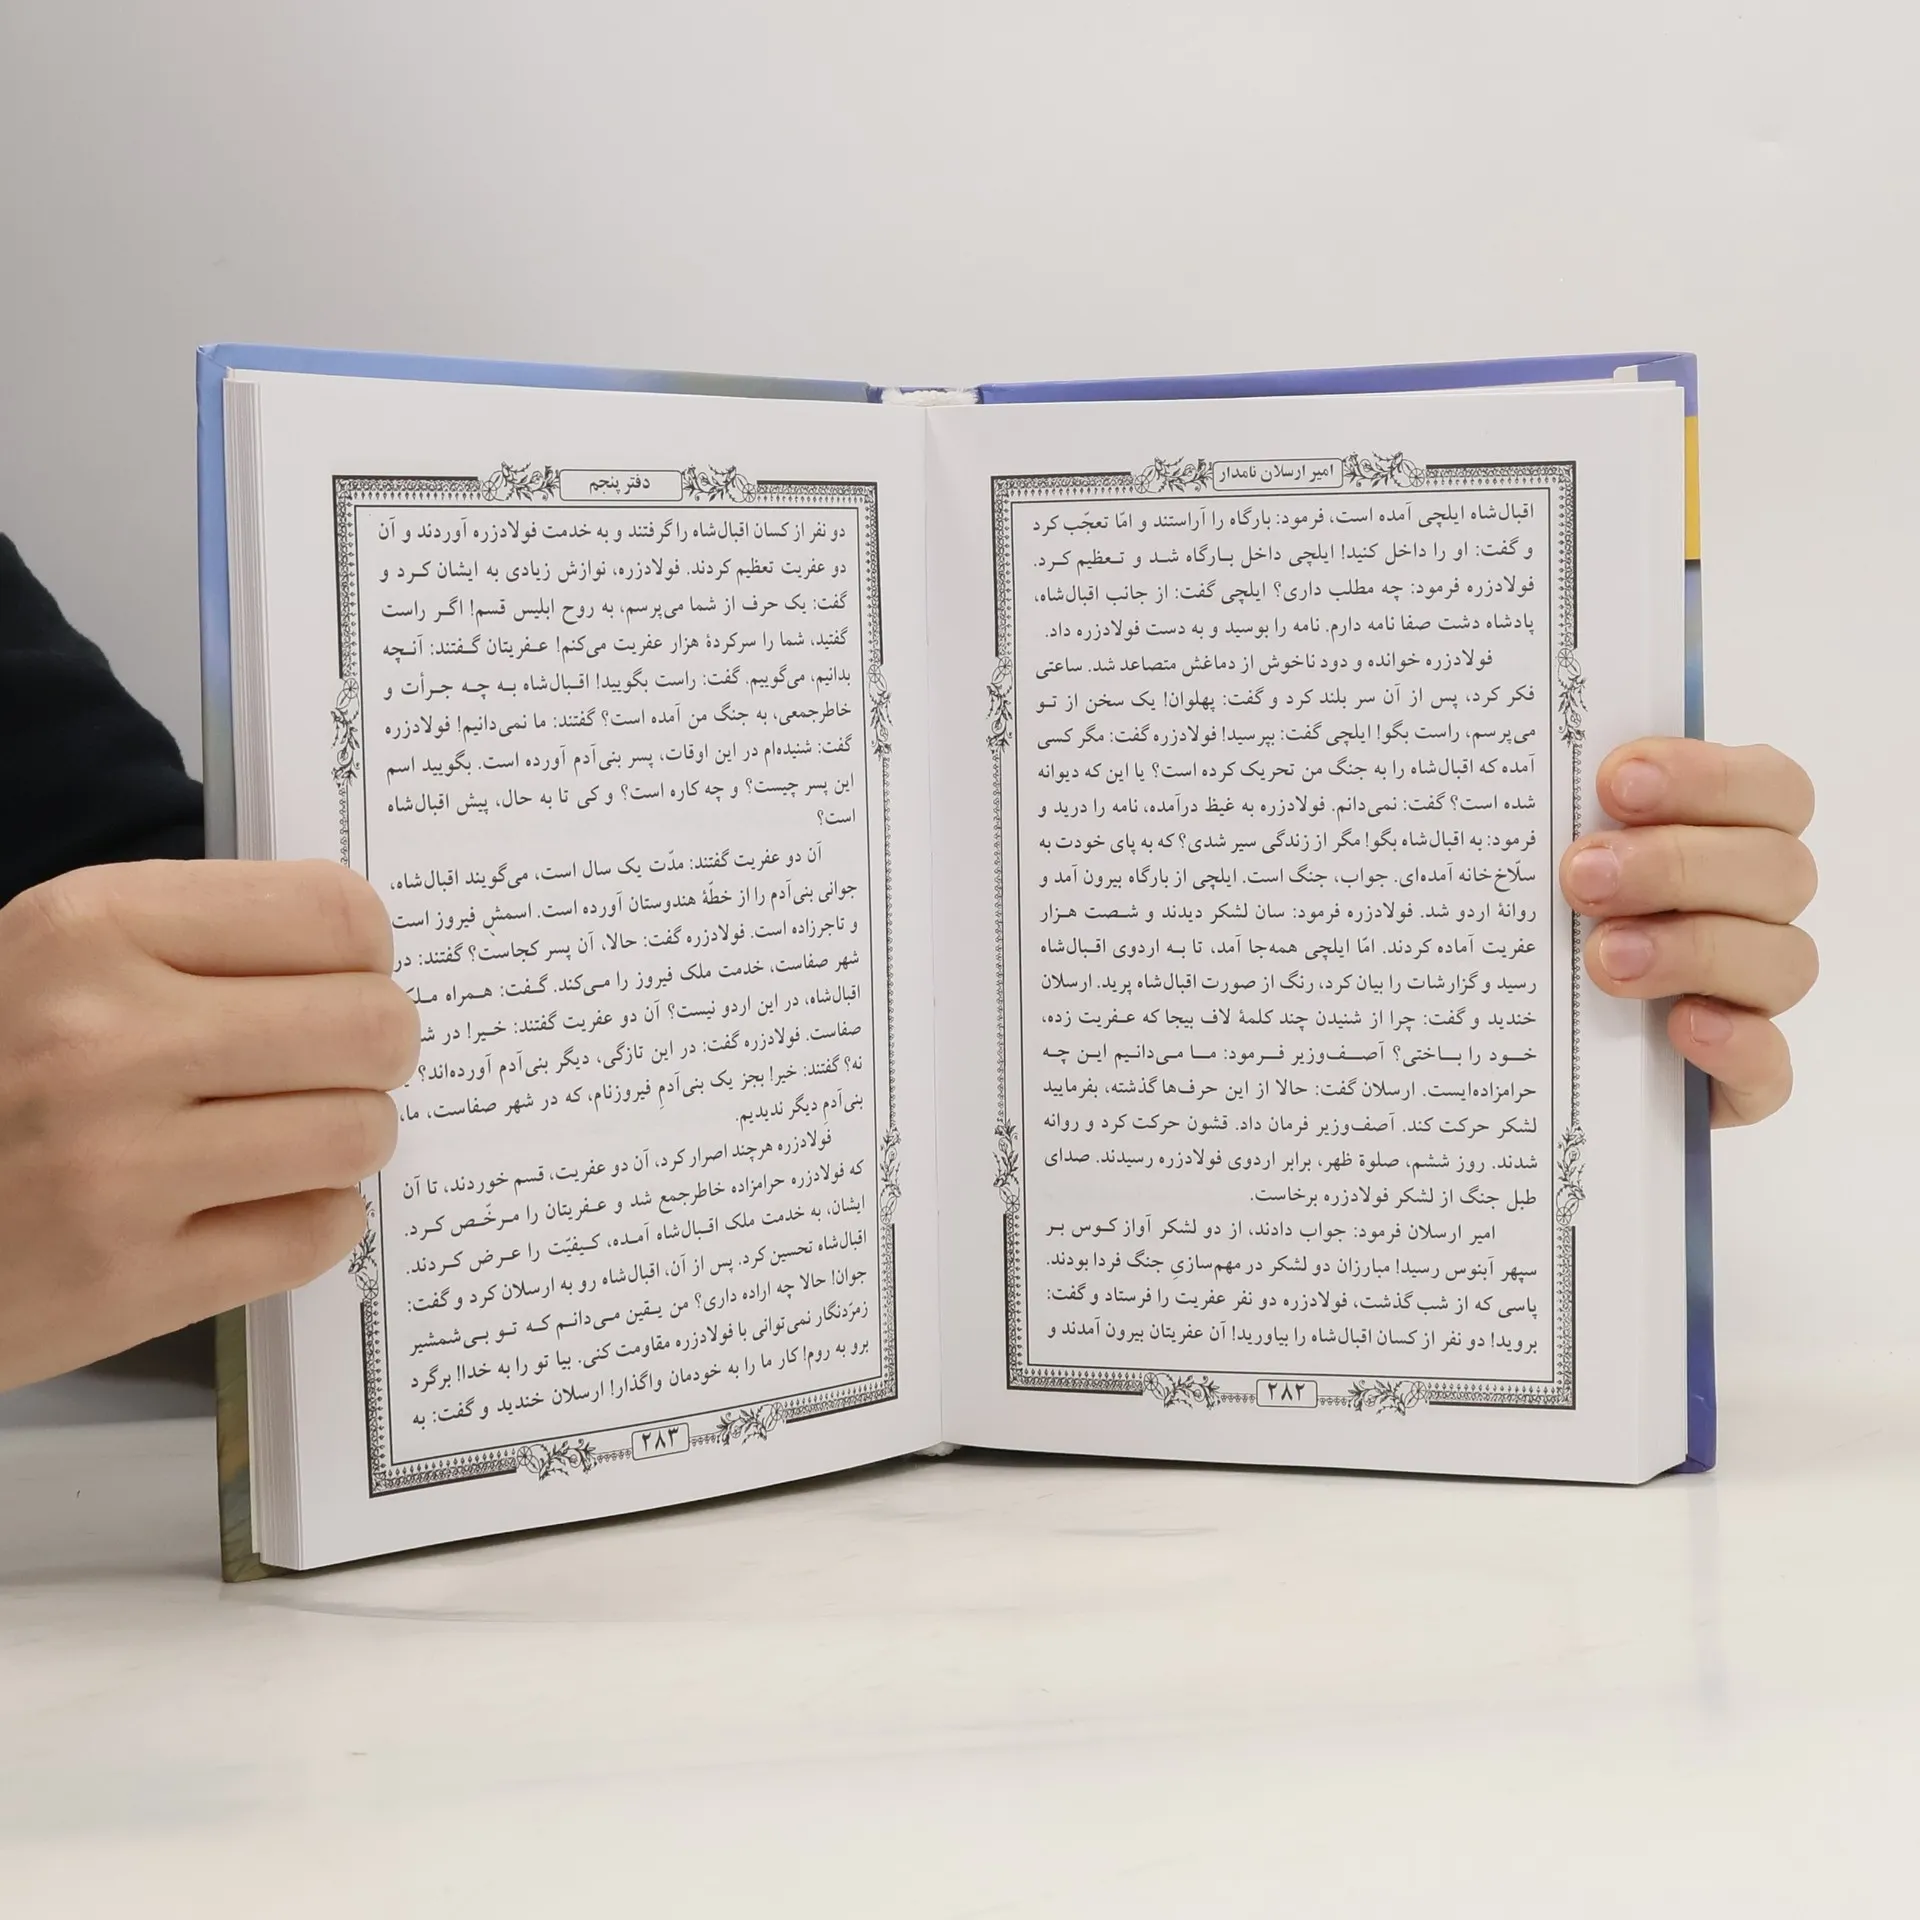 امیر ارسلان نامدار
اقبال‌شاه ایلچی آمده است، فرمود: بارگاه را آراستند و امّا تعجّب کرد
و گفت: او را داخل کنید! ایلچی داخل بارگاه شد و تعظیم کرد.
فولادزره فرمود: چه مطلب داری؟ ایلچی گفت: از جانب اقبال‌شاه،
پادشاه دشت صفا نامه دارم. نامه را بوسید و به دست فولادزره داد.
فولادزره خوانده و دود ناخوش از دماغش متصاعد شد. ساعتی
فکر کرد، پس از آن سر بلند کرد و گفت: پهلوان! یک سخن از تو
می‌پرسم، راست بگو! ایلچی گفت: بپرسید! فولادزره گفت: مگر کسی
آمده که اقبال‌شاه را به جنگ من تحریک کرده است؟ یا این که دیوانه
شده است؟ گفت: نمی‌دانم. فولادزره به غیظ درآمده، نامه را درید و
فرمود: به اقبال‌شاه بگو! مگر از زندگی سیر شدی؟ که به پای خودت به
سلّاخ‌خانه آمده‌ای. جواب، جنگ است. ایلچی از بارگاه بیرون آمد و
روانهٔ اردو شد. فولادزره فرمود: سان لشکر دیدند و شصت هزار
عفریت آماده کردند. امّا ایلچی همه‌جا آمد، تا به اردوی اقبال‌شاه
رسید و گزارشات را بیان کرد، رنگ از صورت اقبال‌شاه پرید. ارسلان
خندید و گفت: چرا از شنیدن چند کلمهٔ لاف بیجا که عفریت زده،
خود را باختی؟ آصف‌وزیر فرمود: ما می‌دانیم این چه
حرامزاده‌ایست. ارسلان گفت: حالا از این حرف‌ها گذشته، بفرمایید
لشکر حرکت کند. آصف‌وزیر فرمان داد. قشون حرکت کرد و روانه
شدند. روز ششم، صلوة ظهر، برابر اردوی فولادزره رسیدند. صدای
طبل جنگ از لشکر فولادزره برخاست.
امیر ارسلان فرمود: جواب دادند، از دو لشکر آواز کوس بر
سپهر آبنوس رسید! مبارزان دو لشکر در مهم‌سازیِ جنگ فردا بودند.
پاسی که از شب گذشت، فولادزره دو نفر عفریت را فرستاد و گفت:
بروید! دو نفر از کسان اقبال‌شاه را بیاورید! آن عفریتان بیرون آمدند و
۲۸۲
دفتر پنجم
دو نفر از کسان اقبال‌شاه را گرفتند و به خدمت فولادزره آوردند و آن
دو عفریت تعظیم کردند. فولادزره، نوازش زیادی به ایشان کرد و
گفت: یک حرف از شما می‌پرسم، به روح ابلیس قسم! اگر راست
گفتید، شما را سرکردهٔ هزار عفریت می‌کنم! عفریتان گفتند: آنچه
بدانیم، می‌گوییم. گفت: راست بگویید! اقبال‌شاه به چه جرأت و
خاطرجمعی، به جنگ من آمده است؟ گفتند: ما نمی‌دانیم! فولادزره
گفت: شنیده‌ام در این اوقات، پسر بنی‌آدم آورده است. بگویید اسم
این پسر چیست؟ و چه کاره است؟ و کی تا به حال، پیش اقبال‌شاه
است؟
آن دو عفریت گفتند: مدّت یک سال است، می‌گویند اقبال‌شاه،
جوانی بنی‌آدم را از خطّهٔ هندوستان آورده است. اسمش فیروز است
و تاجرزاده است. فولادزره گفت: حالا، آن پسر کجاست؟ گفتند: در
شهر صفاست، خدمت ملک فیروز را می‌کند. گفت: همراه
اقبال‌شاه، در این اردو نیست؟ آن دو عفریت گفتند: خیر! در
صفاست. فولادزره گفت: در این تازگی، دیگر بنی‌آدم آورده‌اند؟
نه؟ گفتند: خیر! بجز یک بنی‌آدمِ فیروزنام، که در شهر صفاست، ما،
بنی‌آدمِ دیگر ندیدیم.
فولادزره هرچند اصرار کرد، آن دو عفریت، قسم خوردند، تا آن
که فولادزره حرامزاده خاطرجمع شد و عفریتان را مرخّص کرد.
ایشان، به خدمت ملک اقبال‌شاه آمده، کیفیّت را عرض کردند.
اقبال‌شاه تحسین کرد. پس از آن، اقبال‌شاه رو به ارسلان کرد و گفت:
جوان! حالا چه اراده داری؟ من یقین می‌دانم که تو بی‌شمشیر
زمرّدنگار نمی‌توانی با فولادزره مقاومت کنی. بیا تو را به خدا! برگرد
برو به روم! کار ما را به خودمان واگذار! ارسلان خندید و گفت: به
۲۸۳